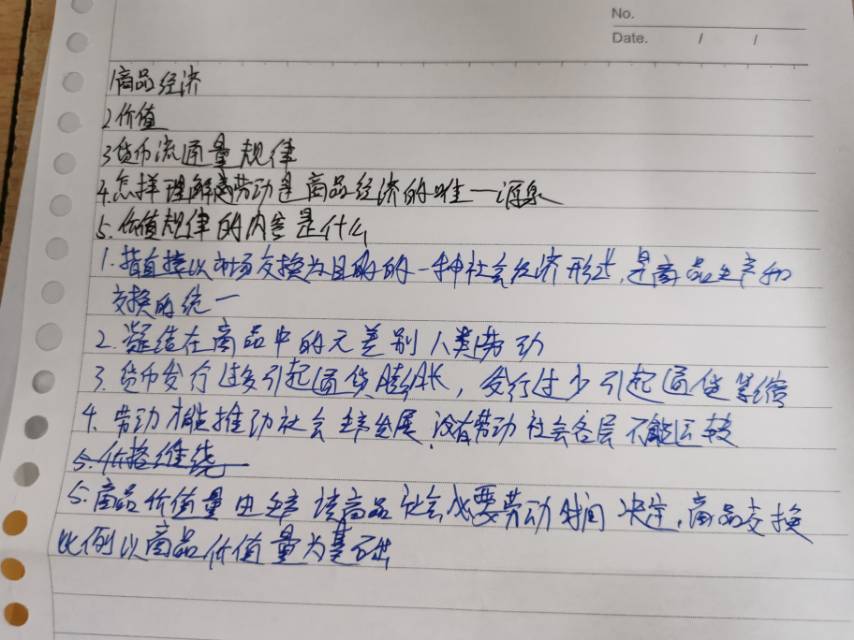 No.
Date. / /
1商品经济
2价值
3货币流通量规律
4.怎样理解劳动是商品经济的唯一源泉
5.价值规律的内容是什么
1.指直接以市场交换为目的的一种社会经济形式,是商品生产和
交换的统一
2.凝结在商品中的无差别人类劳动
3.货币发行过多引起通货膨胀,发行过少引起通货紧缩
4.劳动才能推动社会生产发展.没有劳动社会各层不能运转
5.价格维绕
5.商品价值量由生产该商品社会必要劳动时间决定,商品交换
比例以商品价值量为基础